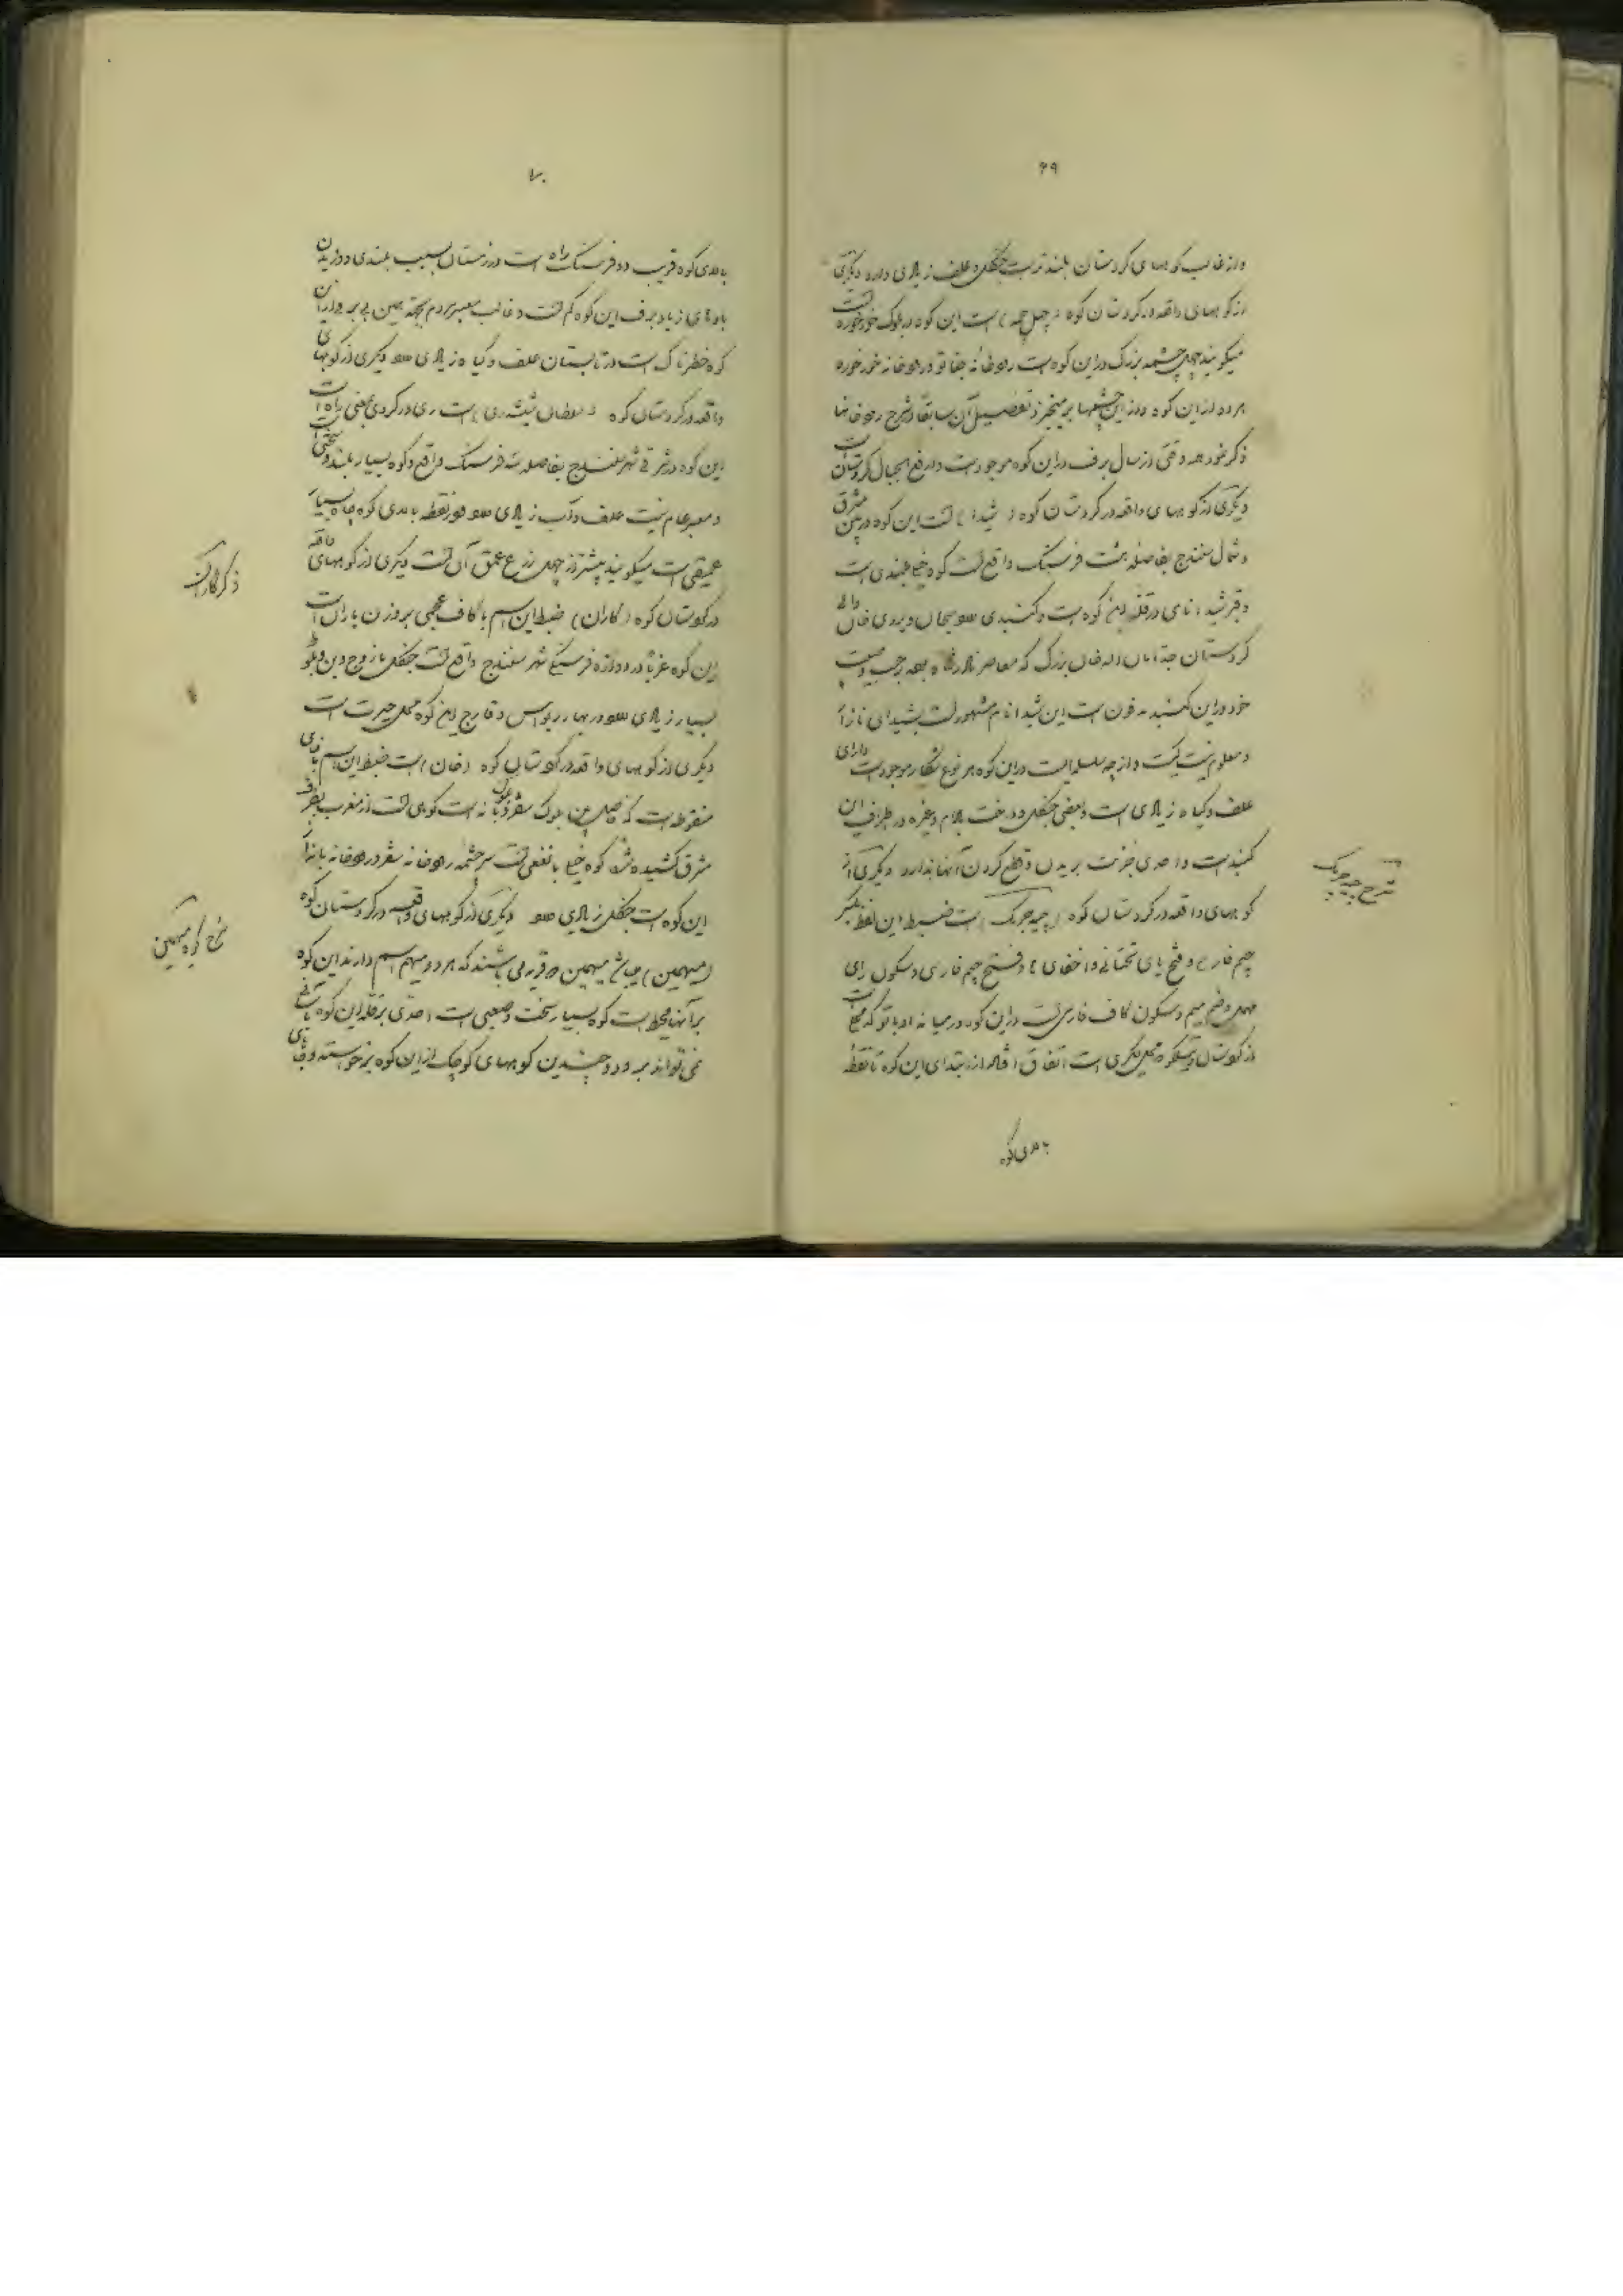 ۶۹
و از غالب کوههای کردستان بلندتر است جنگل و علف زیادی دارد دیگری
از کوههای واقعه در کردستان کوه (چهل چمه) است این کوه در بلوک خورخوره است
میگویند چهل چشمه بزرگ در این کوه است رودخانه جغاتو و رودخانه خورخوره
هر دو از این کوه و از این چشمها بر میخیزد تفصیل آن سابقا در شرح رودخانها
ذکر شد هر وقتی از سال برف در این کوه موجود است و ارفع الجبال کردستان است
دیگری از کوههای واقعه در کردستان کوه (شیدا) است این کوه در بین مشرق
و شمال سنندج بفاصله هشت فرسنگ واقع است کوه خیلی بلندی است
و قبر شیدا نامی در قلّه این کوه است و گنبدی دارد سبحان ویردی خان والی
کردستان جد امان اله خان بزرگ که معاصر نادرشاه بوده بر حسب وصیت
خود در این گنبد مدفون است این شیدا نام مشهور است بشیدای نازار
و معلوم نیست کیست و از چه سلسله است در این کوه هر نوع شکار موجود است دارای
علف و گیاه زیادی است و بعضی جنگل و درخت بادام و غیره در اطراف آن
گنبد است و احدی جرئت بریدن و قطع کردن آنها ندارد دیگری از
کوههای واقعه در کردستان کوه (چهچرمگ) است ضبط این لفظ بکسر
چیم فارسی و فتح یای تحتانی و اخفای ها و فتح چیم فارسی و سکون رای
مهمله و ضم میم و سکون کاف فارسی است در این کوه در میانه اوباتو که محلی است
از کردستان و تیلکو محل دیگری است اتفاق افتاده از ابتدای این کوه تا نقطه
بلندی کوه
شرح چهچرمگ
۷۰
بلندی کوه قریب دو فرسنگ راه است در زمستان بسبب بلندی و وزیدن
بادهای زیاد برف این کوه کم است و غالب معبر مردم بجهة همین بی برفی از آن
کوه خطرناک است در تابستان علف و گیاه زیادی دارد دیگری از کوههای
واقعه در کردستان کوه (سلطان ری) است ری در کردی بمعنی راه است
این کوه در شرقی شهر سنندج بفاصله سه فرسنگ واقع و کوه بسیار بلند و سختی است
و معبر عام نیست علف و آب زیادی دارد در نقطه بلندی کوه چاه بسیار
عمیقی است میگویند بیشتر از چهل ذرع عمق آن است دیگری از کوههای واقعه
در کردستان کوه (گاران) ضبط این اسم با کاف عجمی بر وزن باران است
این کوه غربا در دوازده فرسنگی شهر سنندج واقع است جنگل مازوج و بن و بلوط
بسیار زیادی دارد در بهار ریواس و قارچ این کوه محل حیرت است
دیگری از کوههای واقعه در کردستان کوه (خان) است ضبط این اسم با خای
منقوطه است که فاصل بین بلوک سقز و بانه است کوهی است از مغرب بطرف
مشرق کشیده شده کوه خیلی با نفعی است سرچشمه رودخانه سقز و رودخانه بانه از
این کوه است جنگل زیادی دارد دیگری از کوههای واقعه در کردستان کوه
(میهمین) میهمین دو قریه می باشند که هر دو میهم اسم دارند این کوه
بر آنها محیط است کوه بسیار سخت و صعبی است احدی بر قله این کوه بآسانی
نمی تواند برود و چندین کوههای کوچک از این کوه برخواسته و بجای
ذکر گاران
شرح کوه میهمین